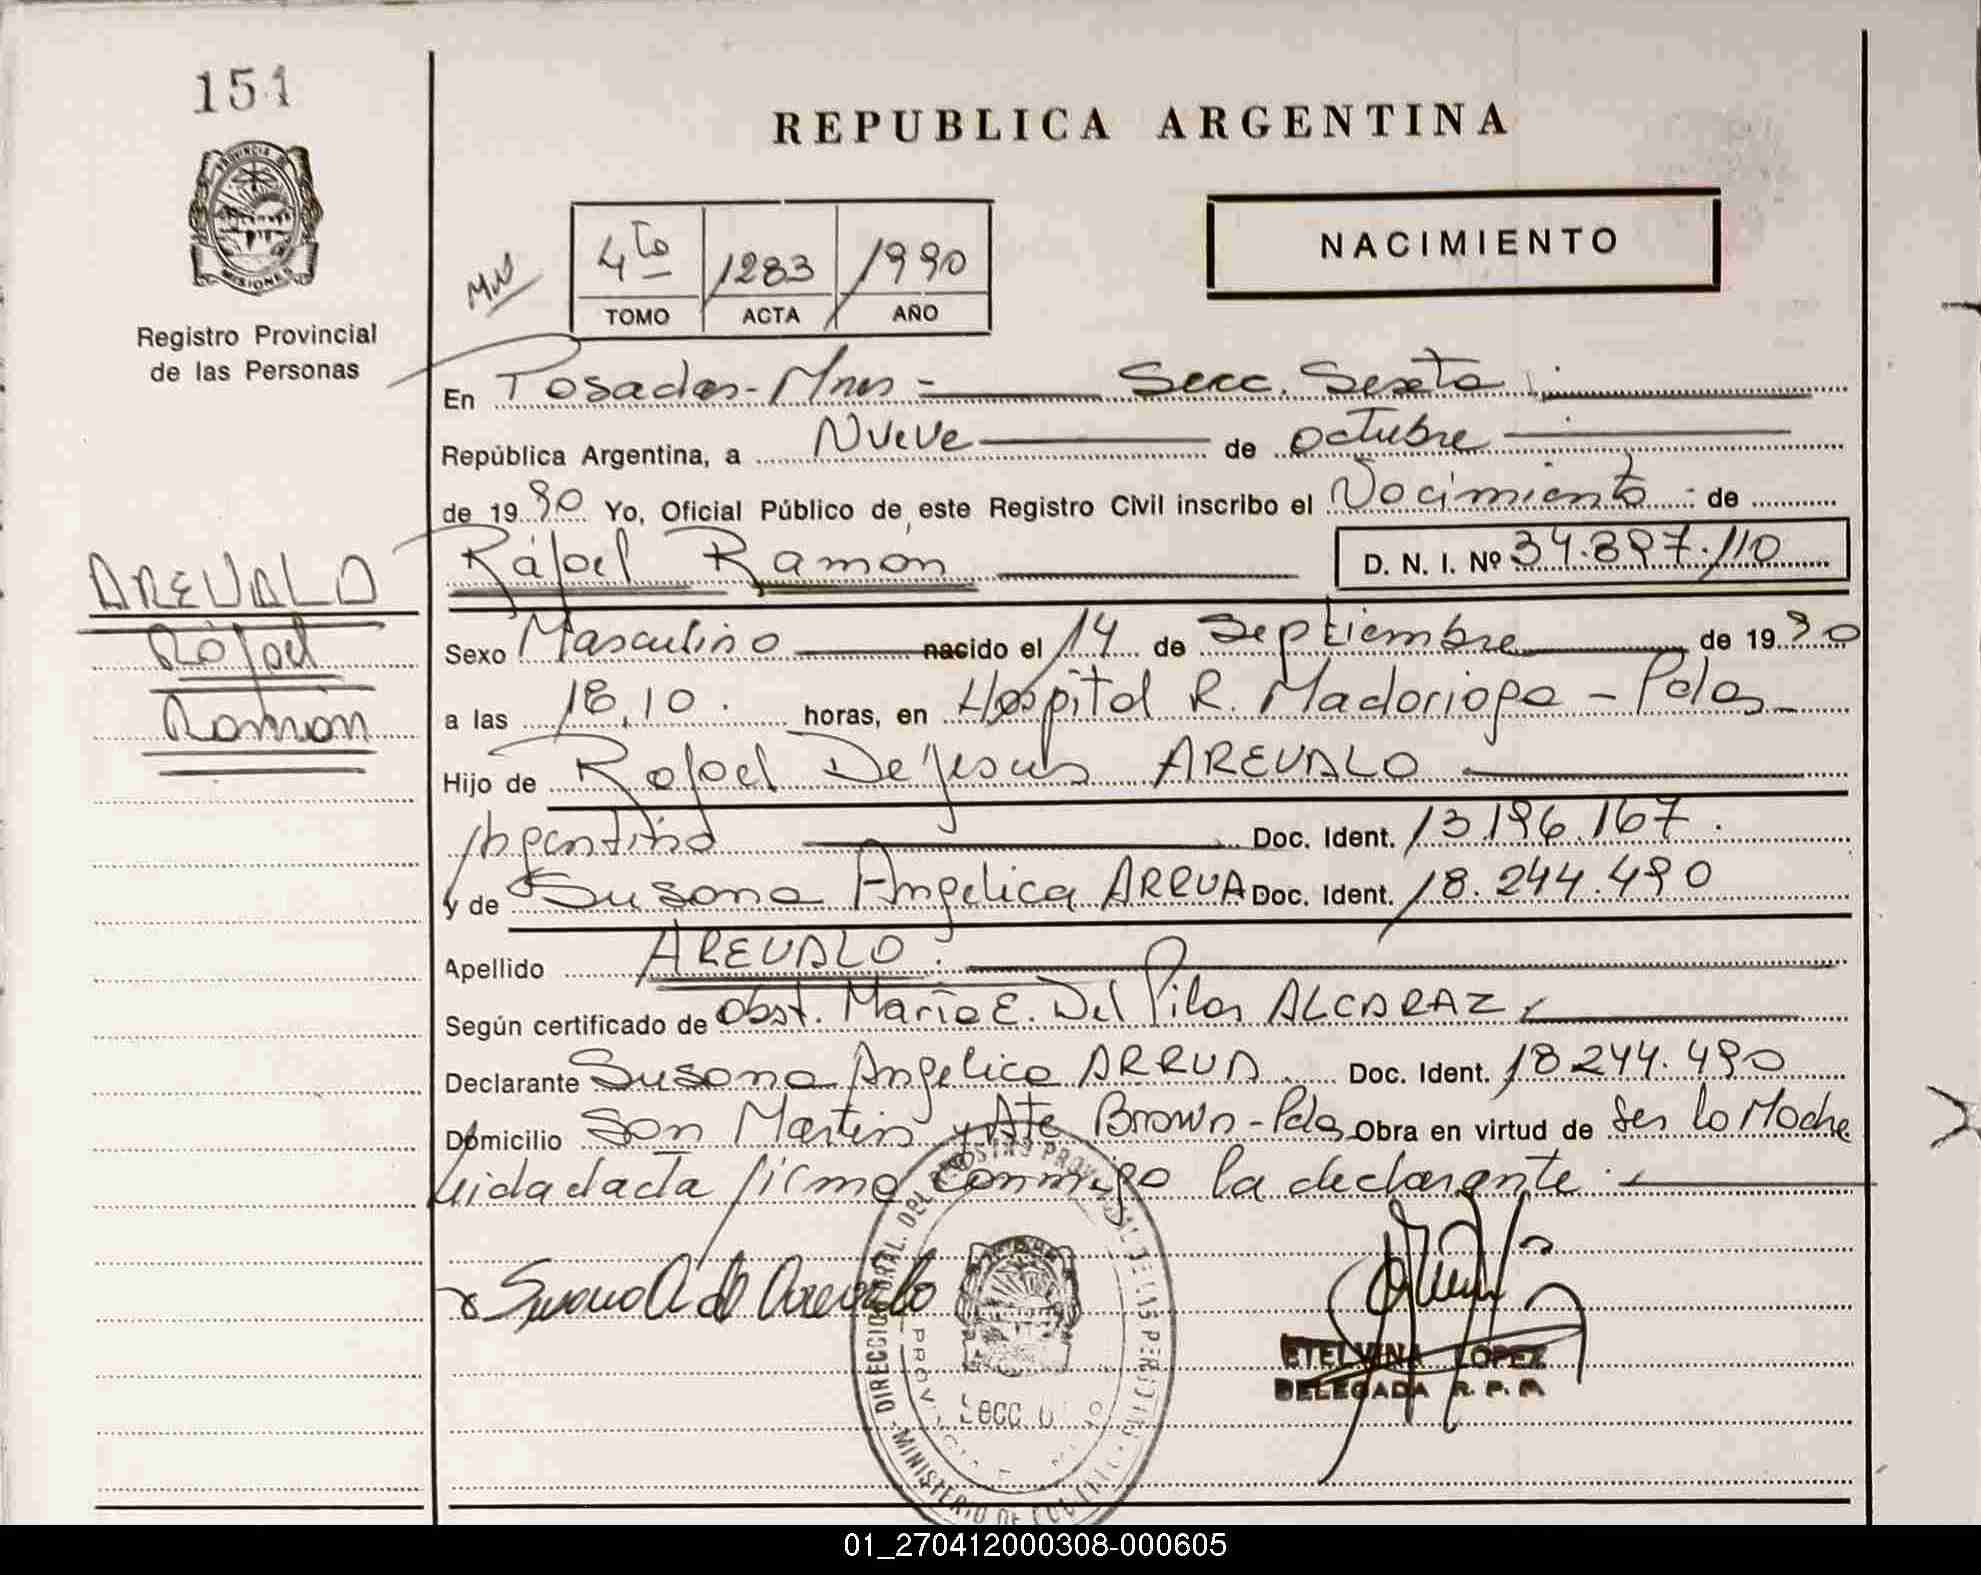 151
REPUBLICA ARGENTINA
PROVINCIA DE
MISIONES
Registro Provincial
de las Personas
4to 1283 1990
TOMO ACTA AÑO
NACIMIENTO
En Posadas - Mnes - Secc. Sexta
República Argentina, a Nueve de octubre
de 1990 Yo, Oficial Público de este Registro Civil inscribo el Nacimiento de
Rafael Ramón D. N. I. Nº 34.897.110
AREVALO
Rafael
Ramón
Sexo Masculino nacido el 14 de Septiembre de 1990
a las 18,10 horas, en Hospital R. Madariaga - Pdas
Hijo de Rafael De Jesus AREVALO
Argentino Doc. Ident. 13.196.167
y de Susana Angelica ARRUA Doc. Ident. 18.244.490
Apellido AREVALO
Según certificado de Obst. María E. Del Pilar ALCARAZ
Declarante Susana Angelica ARRUA Doc. Ident. 18244.490
Domicilio San Martin y Ate Brown - Pdas Obra en virtud de ser la Madre
Leida el acta firma conmigo la declarante
Susana A de Arevalo
ETELVINA LOPEZ
DELEGADA R. P. P.
01_270412000308-000605